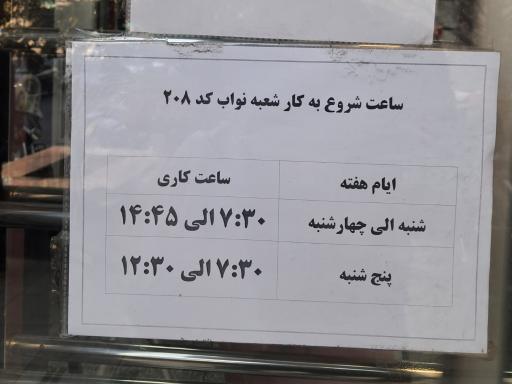 ساعت شروع به کار شعبه نواب کد ۲۰۸
ایام هفته ساعت کاری
شنبه الی چهارشنبه ۷:۳۰ الی ۱۴:۴۵
پنج شنبه ۷:۳۰ الی ۱۲:۳۰